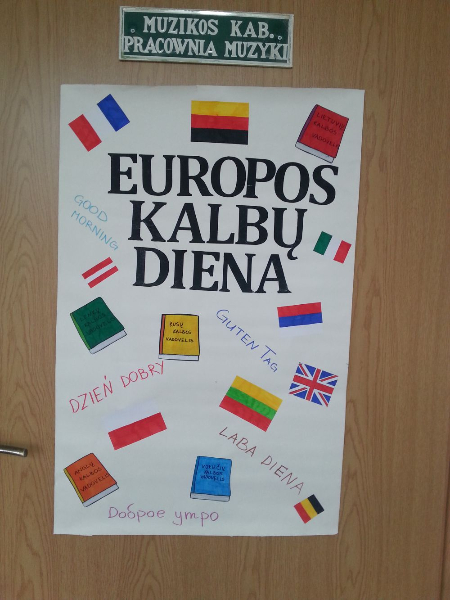 MUZIKOS KAB.
PRACOWNIA MUZYKI
EUROPOS
KALBŲ
DIENA
LIETUVIŲ
KALBOS
VADOVĖLIS
GOOD
MORNING
GUTEN TAG
RUSŲ
KALBOS
VADOVĖLIS
DZIEŃ DOBRY
LABA DIENA
KALBOS
VADOVĖLIS
VOKIEČIŲ
KALBOS
VADOVĖLIS
Доброе утро